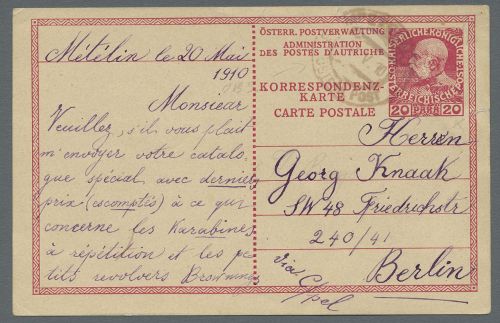 Métélin le 20 Mai
1910
Monsieur
Veuillez, s'il vous plait
m'envoyer votre catalo-
gue spécial, avec derniers
prix (escomptés) à ce qui
concerne les Karabines
à répétition et les pe-
tits revolvers Brownings
ÖSTERR. POSTVERWALTUNG
ADMINISTRATION
DES POSTES D'AUTRICHE
KORRESPONDENZ-
KARTE
CARTE POSTALE
20 PARA 20
Herren
Georg Knaak
SW 48 Friedrichstr
240/41
Berlin
via C/pel